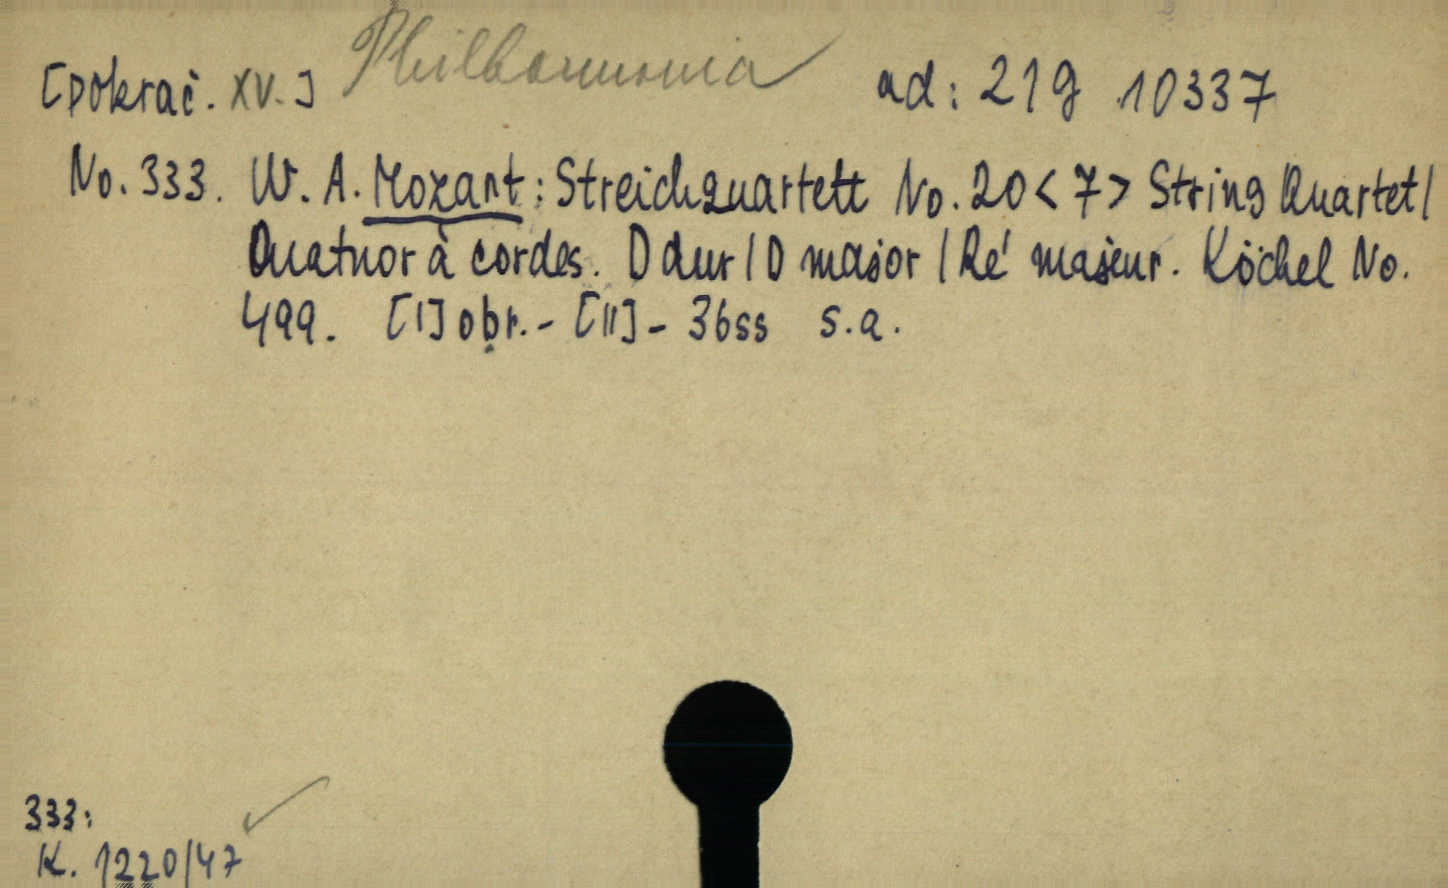 [pokrač. XV.] Philharmonia ad: 21g 10337
No. 333. W. A. Mozart: Streichquartett No. 20 < 7 > String Quartet /
Quatuor à cordes. D dur / D major / Ré majeur. Köchel No.
499. [I] obr. - [II] - 36ss s. a.
333:
K. 1220/47